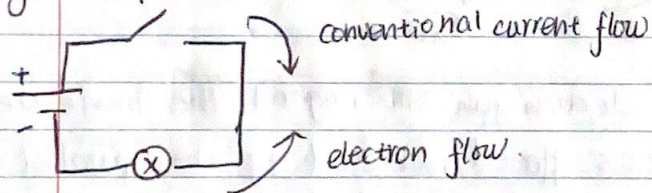 conventional current flow
+
-
electron flow.